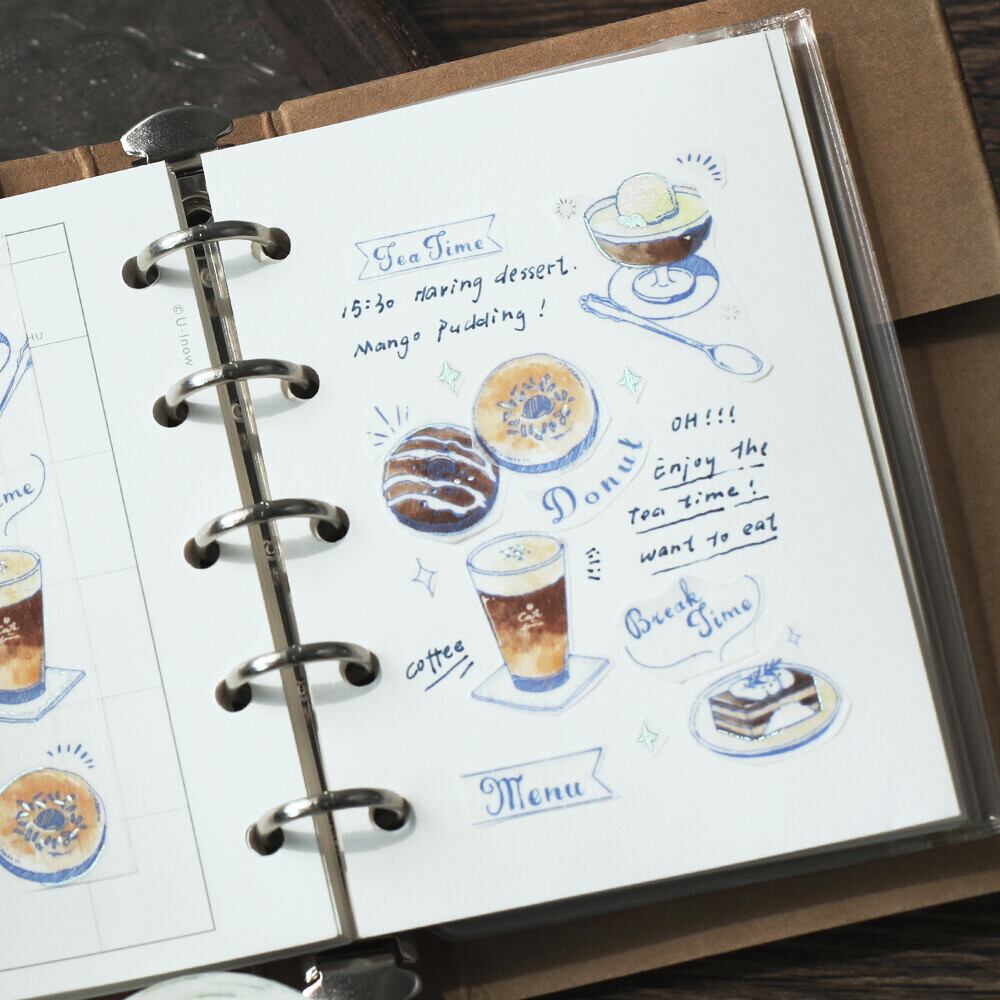 Tea Time
15:30 Having dessert.
Mango pudding!
Donut
OH!!!
Enjoy the
Tea time!
want to eat
Break
Time
coffee
Menu
©U-Know